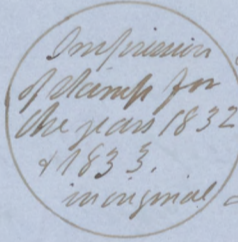 Impression
of stamp for
the years 1832
& 1833.
in original